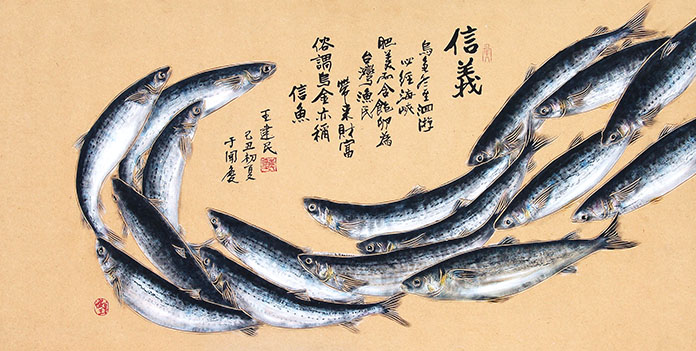 信義
烏魚冬至洄游
必經海峽
肥美而含飽卵為
台灣漁民
帶來財富
俗謂烏金亦稱
信魚
王建民
己丑初夏